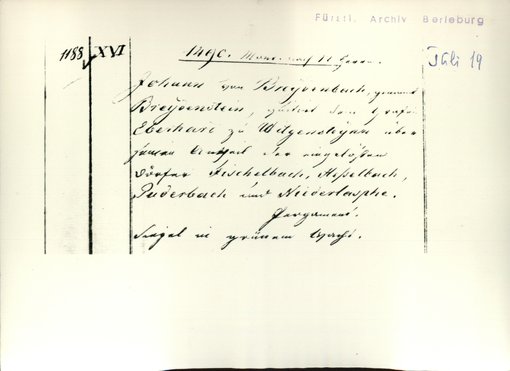 Fürstl. Archiv Berleburg
1188 XVI
1490. Mont. nach
Juli 19
Johann von Breydenbach, genannt
Breydenstein, quitirt dem Grafen
Eberhard zu Witgenstein über
seinen Antheil der eingelösten
Dörfer Fischelbach, Hesselbach,
Puderbach und Niederlasphe.
Pergament.
Siegel in grünem Wachs.